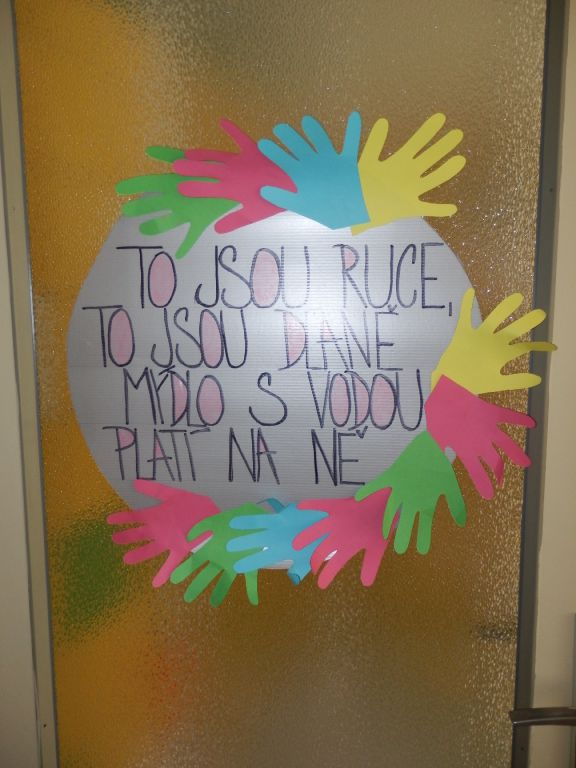 TO JSOU RUCE,
TO JSOU DLANĚ
MÝDLO S VODOU
PLATÍ NA NĚ